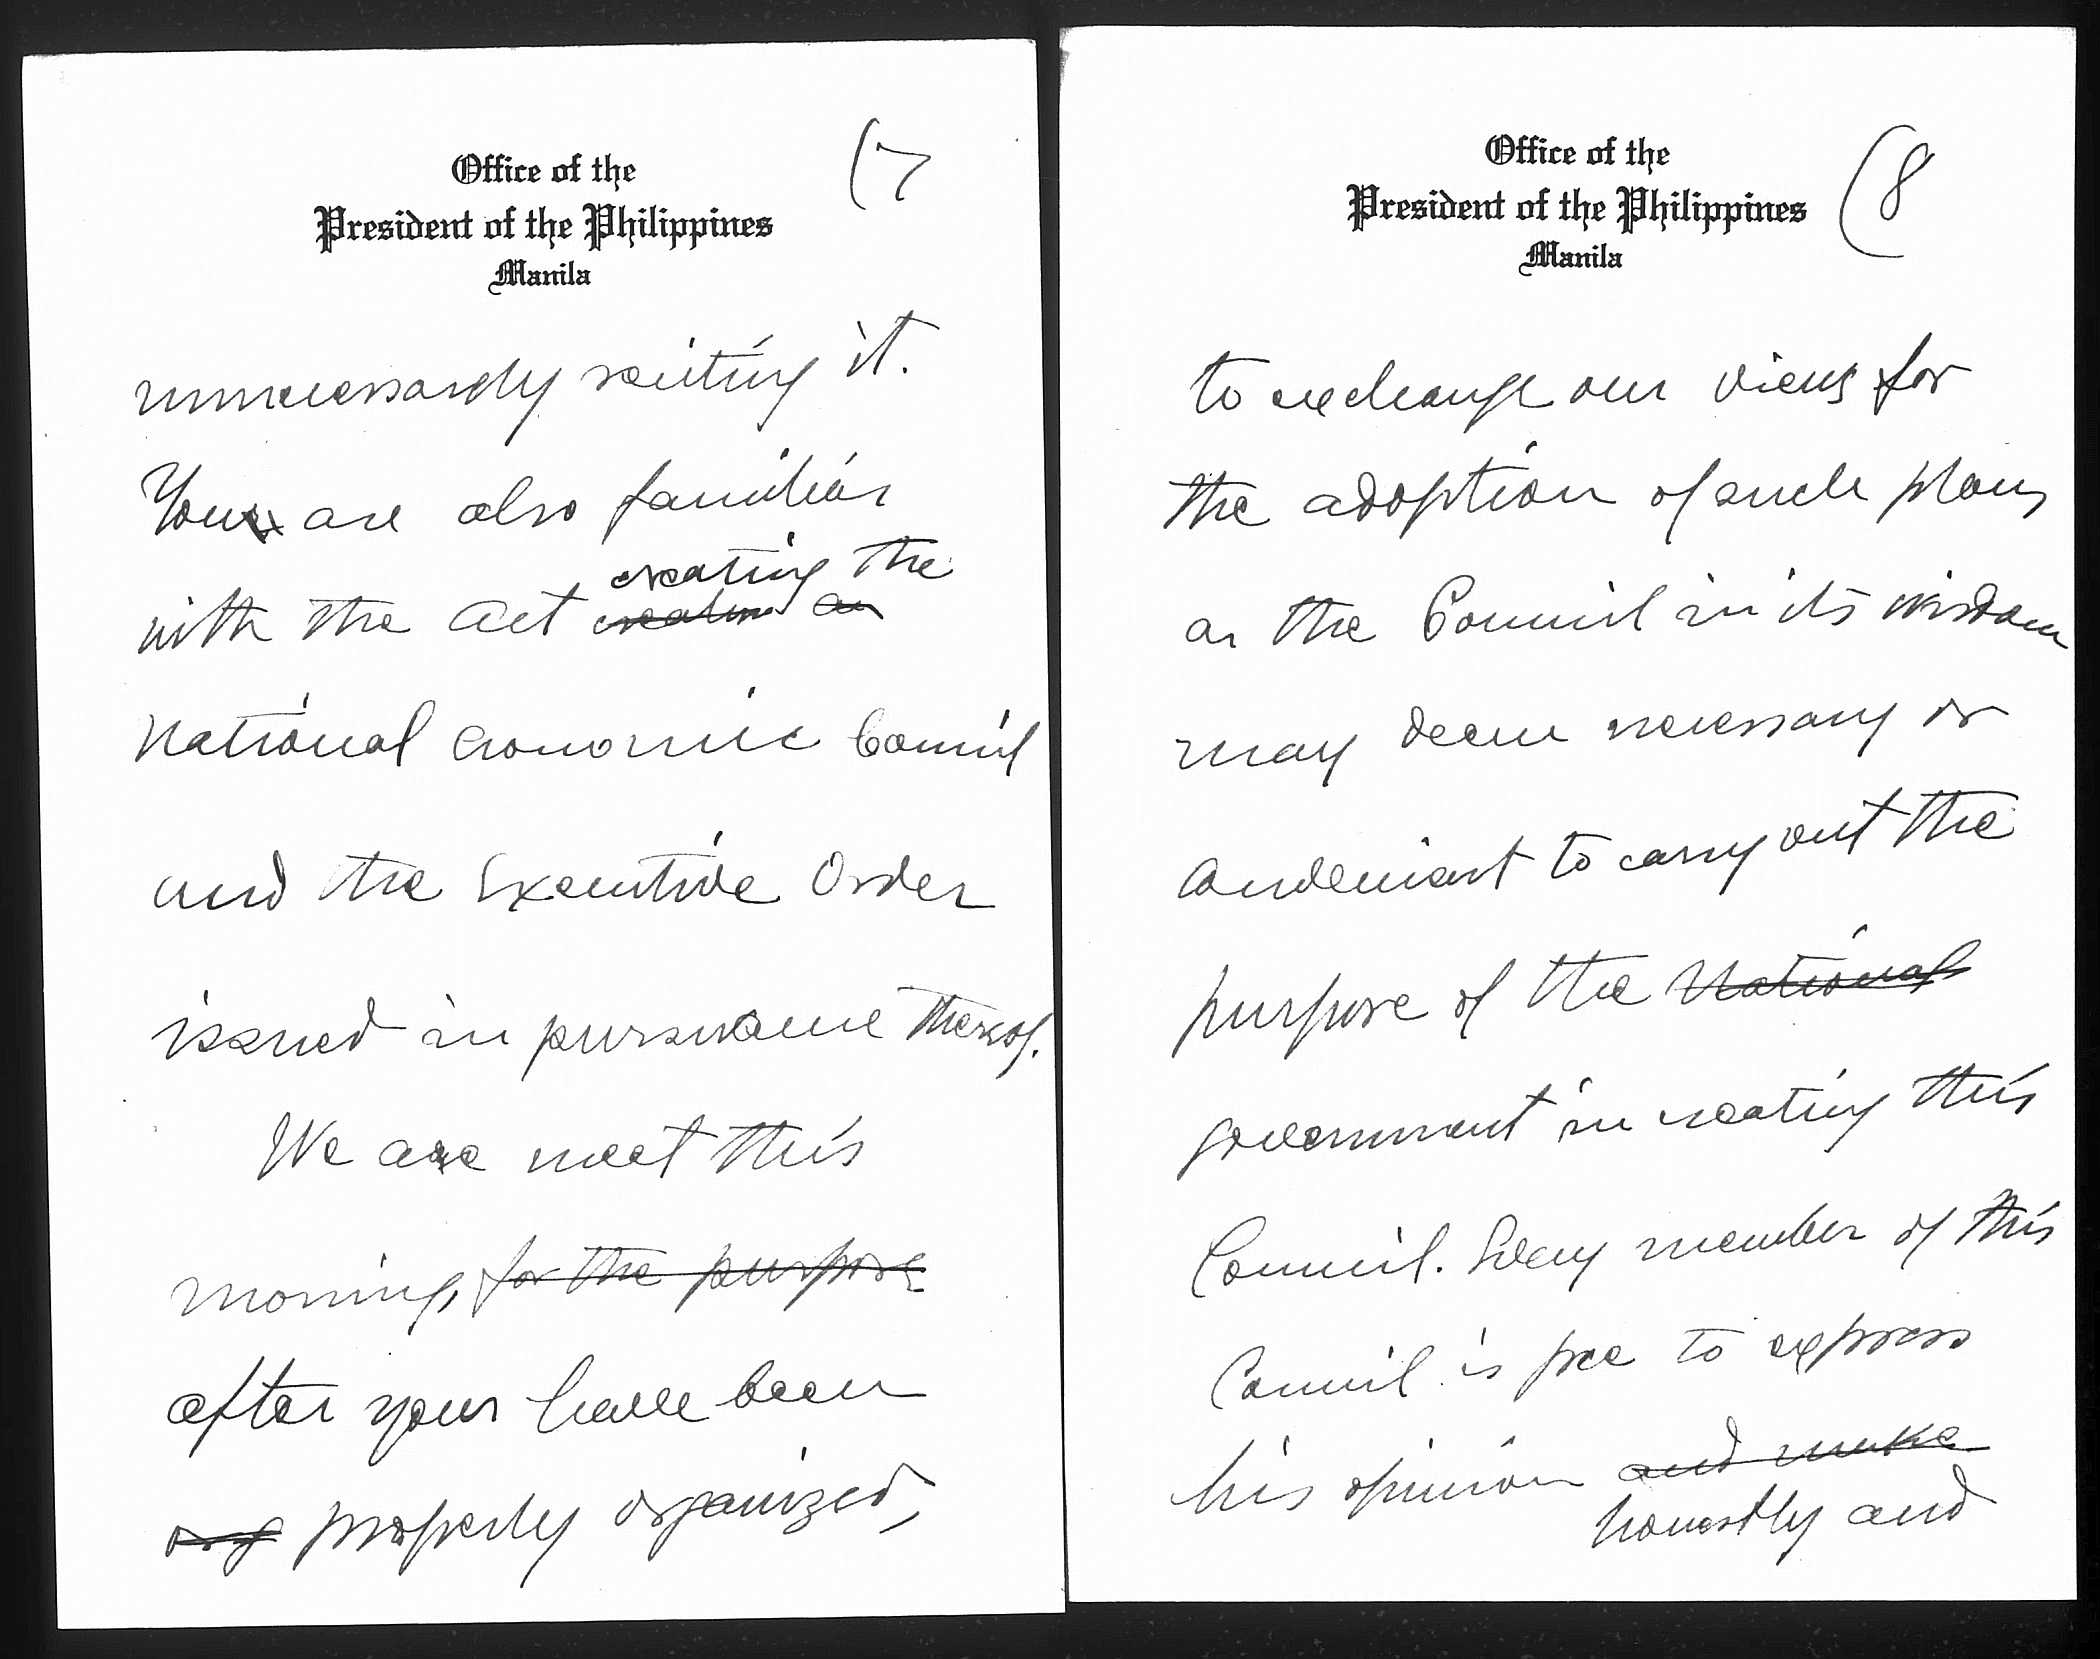 Office of the
President of the Philippines
Manila
(7
unnecessarily reciting it.
You are also familiar
creating the
with the Act creating an
National Economic Council
and the Executive Order
issued in pursuance thereof.
We are meet this
morning, for the purpose
after your have been
org properly organized,
Office of the
President of the Philippines
Manila
(8
to exchange our views for
the adoption of such plans
as the Council in its wisdom
may deem necessary or
convenient to carry out the
purpose of the National
government in creating this
Council. Every member of this
Council is free to express
his opinion and make
honestly and